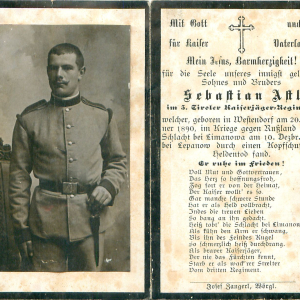 Mit Gott und
für Kaiser Vaterla
Mein Jesus, Barmherzigkeit!
für die Seele unseres innigst gel
Sohnes und Bruders
Sebastian Astl
im 3. Tiroler Kaiserjäger-Regim
welcher, geboren in Westendorf am 20.
ner 1890, im Kriege gegen Rußland
Schlacht bei Limanowa am 10. Dezbr.
bei Lepanow durch einen Kopfschu
Heldentod fand.
Er ruhe im Frieden!
Voll Mut und Gottvertrauen,
Das Herz so hoffnungsfroh,
Zog fort er von der Heimat,
Der Kaiser wollt' es so.
Gar manche schwere Stunde
Hat er als Held vollbracht,
Indes die treuen Lieben
So bang an ihn gedacht.
Heiß tobt' die Schlacht bei Limano
Als kühn den Arm er schwang,
Bis ihn des Feindes Kugel
So schmerzlich heiß durchdrang.
Als braver Kaiserjäger,
Der nie das Fürchten kennt,
Starb er als wack'rer Streiter
Vom dritten Regiment.
Josef Zangerl, Wörgl.